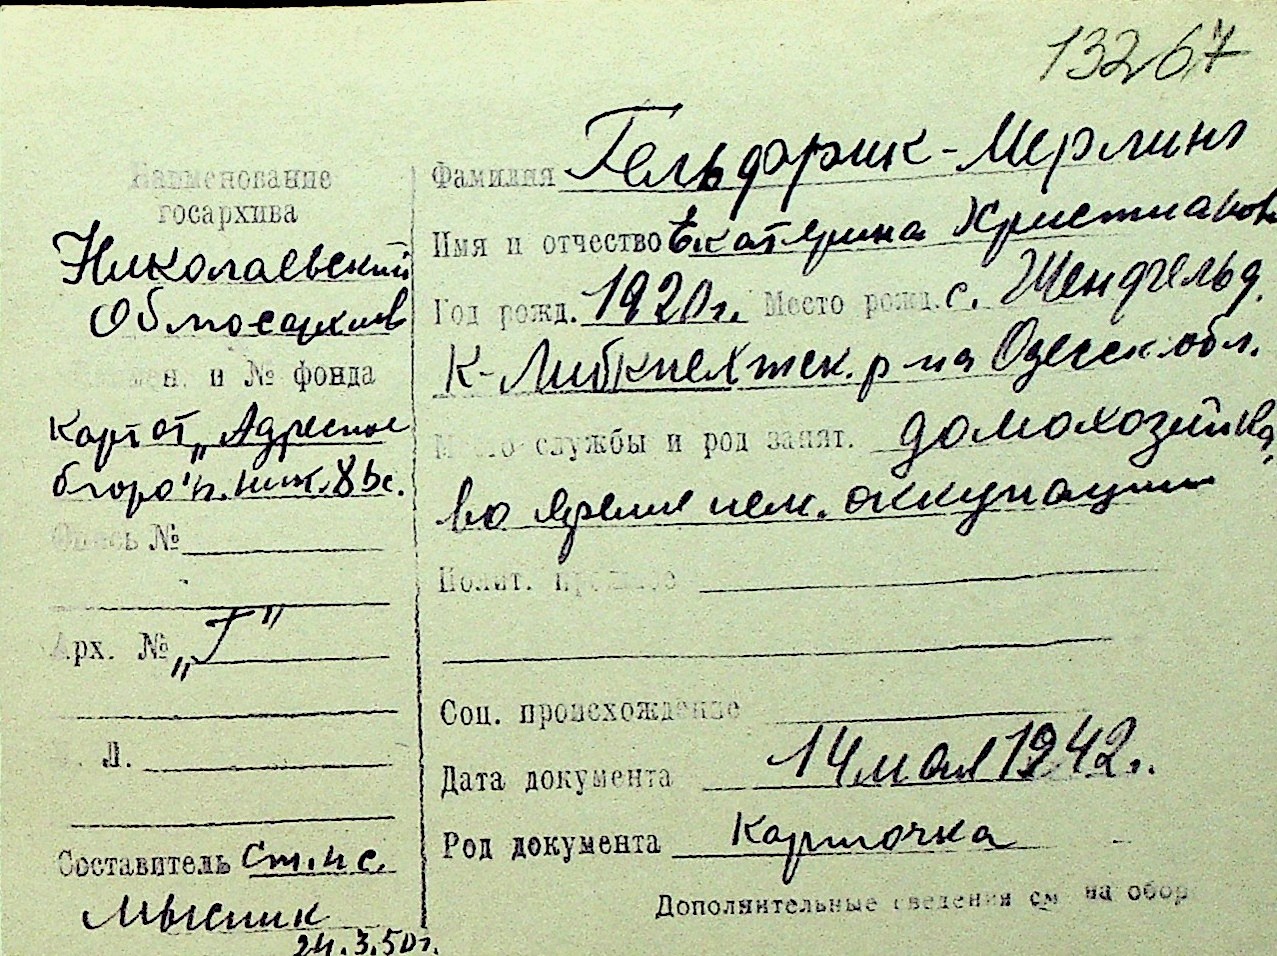 13267
Наименование
госархива
Николаевский
Облгосархив
и № фонда
Картот. „Адресное
бюро" п.
Опись №
Арх. № „Г"
Л.
Составитель ст. н с.
Мысник
24.3.50г.
Фамилия Гельдфрик-Мерлинг
Имя и отчество Екатерина Христианов
Год рожд. 1920г. Место рожд. с. Шенфельд
К-Либкнехтск. р-на Одесск обл.
Место службы и род занят. домохозяйка,
во время нем. оккупации
Полит. прошлое
Соц. происхождение
Дата документа 14 мая 1942г.
Род документа Карточка
Дополнительные сведения см на обор